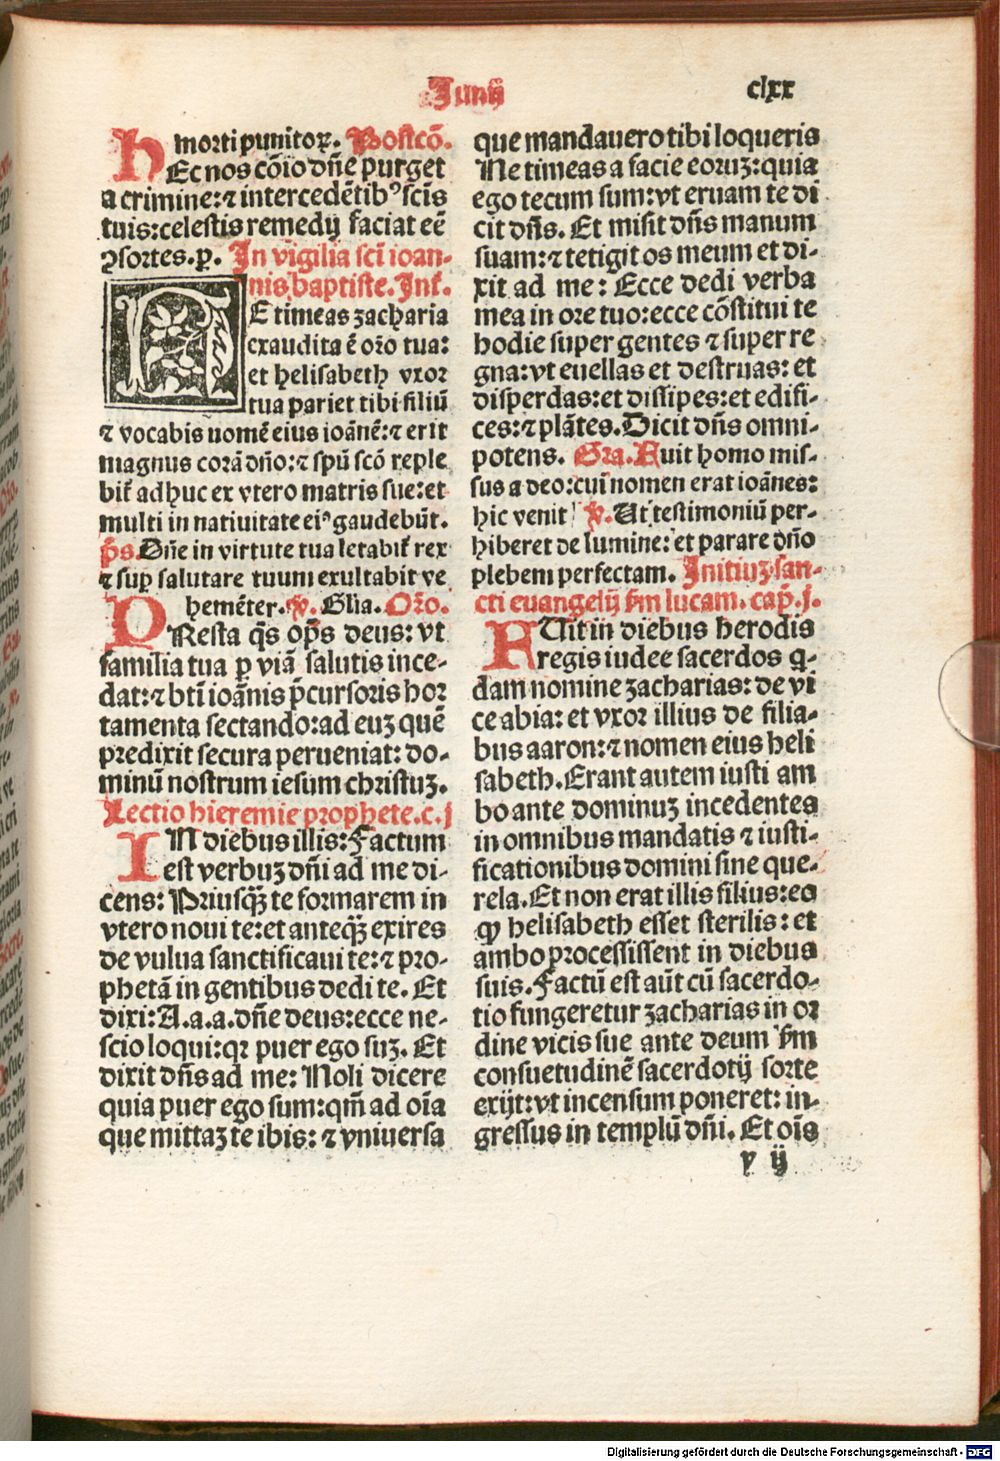 Junij
clxx
morti punitoꝝ. Postcõ.
HEc nos cõio dñe purget
a crimine: ⁊ intercedẽtibꝰ scĩs
tuis: celestis remedij faciat eẽ
ꝯsortes. p. In vigilia scĩ ioan-
nis baptiste. Int̃.
NE timeas zacharia
exaudita ẽ or̃o tua:
et helisabeth vxor
tua pariet tibi filiũ
⁊ vocabis nomẽ eius ioãnẽ: ⁊ erit
magnus corã dño: ⁊ spũ scõ reple
bit̃ adhuc ex vtero matris sue: et
multi in nativitate eiꝰ gaudebũt.
p̃s. Dñe in virtute tua letabit̃ rex
⁊ suꝑ salutare tuum exultabit ve
hemẽter. ℣. Glia. Or̃o.
PResta q̃s op̃s deus: vt
familia tua ꝑ viã salutis ince-
dat: ⁊ btĩ ioãnis p̃cursoris hor
tamenta sectando: ad euꝫ quẽ
predixit secura perueniat: do-
minũ nostrum iesum christuꝫ.
Lectio hieremie prophete. c. j
IN diebus illis: Factum
est verbuꝫ dñi ad me di-
cens: Priusꝙ̃ te formarem in
vtero noui te: et anteꝙ̃ exires
de vulua sanctificaui te: ⁊ pro-
phetã in gentibus dedi te. Et
dixi: A. a. a. dñe deus: ecce ne-
scio loqui: qꝛ puer ego suꝫ. Et
dixit dñs ad me: Noli dicere
quia puer ego sum: qm̃ ad oĩa
que mittaꝫ te ibis: ⁊ vniuersa
que mandauero tibi loqueris
Ne timeas a facie eoruꝫ: quia
ego tecum sum: vt eruam te di
cit dñs. Et misit dñs manum
suam: ⁊ tetigit os meum et di-
xit ad me: Ecce dedi verba
mea in ore tuo: ecce cõstitui te
hodie super gentes ⁊ super re
gna: vt euellas et destruas: et
disperdas: et dissipes: et edifi-
ces: ⁊ plãtes. Dicit dñs omni-
potens. Gra. Fuit homo mis-
sus a deo: cui nomen erat ioãnes:
hic venit ℣. Ut testimoniũ per-
hiberet de lumine: et parare dño
plebem perfectam. Initiuꝫ san-
cti euangelij s̃m lucam. cap̃. j.
FUit in diebus herodis
regis iudee sacerdos q-
dam nomine zacharias: de vi
ce abia: et vxor illius de filia-
bus aaron: ⁊ nomen eius heli
sabeth. Erant autem iusti am
bo ante dominuꝫ incedentes
in omnibus mandatis ⁊ iusti-
ficationibus domini sine que-
rela. Et non erat illis filius: eo
ꝙ helisabeth esset sterilis: et
ambo processissent in diebus
suis. Factũ est aũt cũ sacerdo-
tio fungeretur zacharias in or
dine vicis sue ante deum s̃m
consuetudinẽ sacerdotij sorte
exijt: vt incensum poneret: in-
gressus in templũ dñi. Et oĩs
y ij
Digitalisierung gefördert durch die Deutsche Forschungsgemeinschaft - DFG